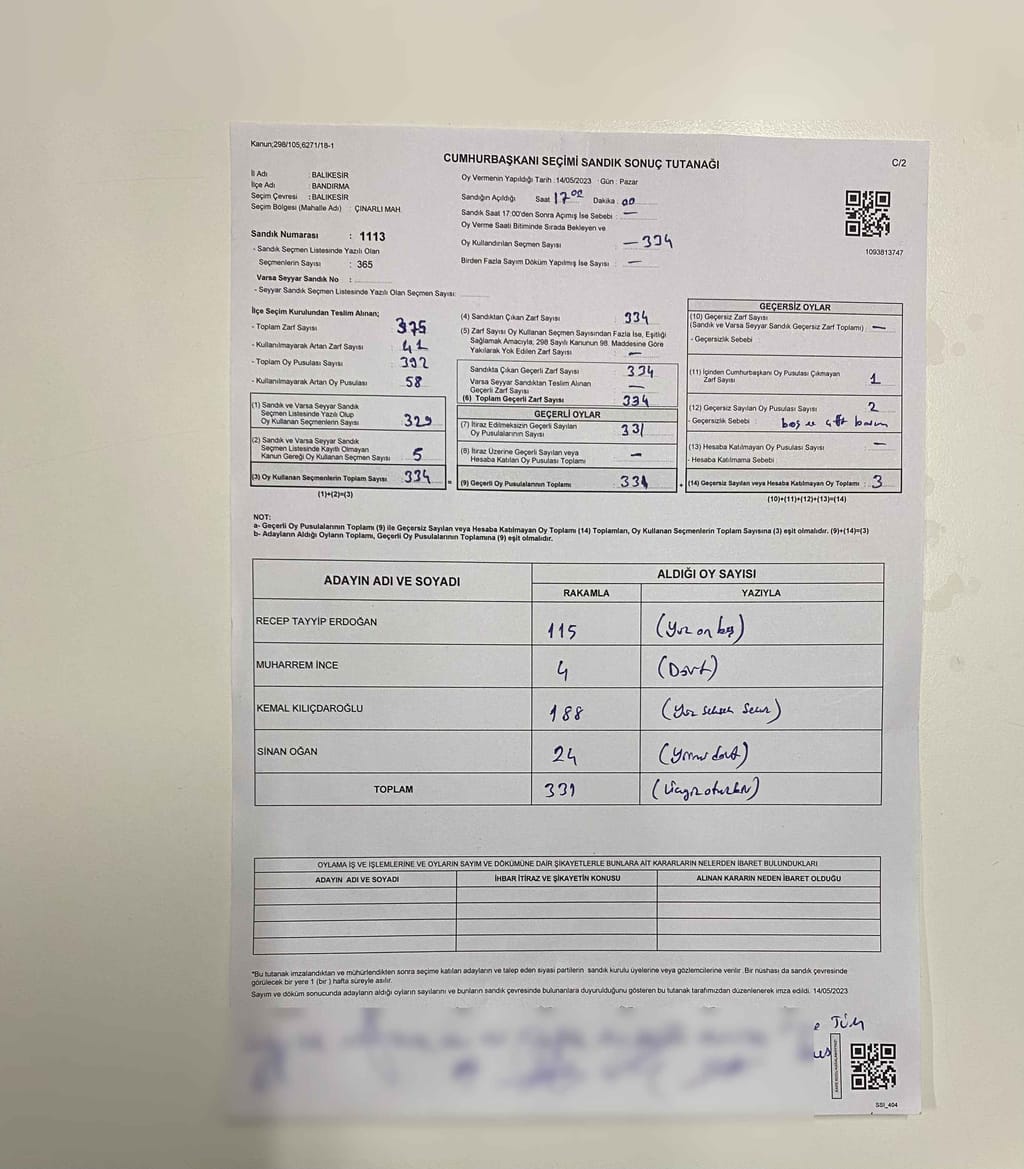 Kanun;298/105,6271/18-1
CUMHURBAŞKANI SEÇİMİ SANDIK SONUÇ TUTANAĞI
C/2
İl Adı : BALIKESİR
İlçe Adı : BANDIRMA
Seçim Çevresi : BALIKESİR
Seçim Bölgesi (Mahalle Adı) : ÇINARLI MAH.
Sandık Numarası : 1113
- Sandık Seçmen Listesinde Yazılı Olan
Seçmenlerin Sayısı : 365
Varsa Seyyar Sandık No :
- Seyyar Sandık Seçmen Listesinde Yazılı Olan Seçmen Sayısı:
Oy Vermenin Yapıldığı Tarih :14/05/2023 Gün : Pazar
Sandığın Açıldığı Saat 17⁰⁰ Dakika : 00
Sandık Saat 17:00'den Sonra Açılmış İse Sebebi : —
Oy Verme Saati Bitiminde Sırada Bekleyen ve
Oy Kullandırılan Seçmen Sayısı — 334
Birden Fazla Sayım Döküm Yapılmış İse Sayısı : —
1093813747
İlçe Seçim Kurulundan Teslim Alınan;
- Toplam Zarf Sayısı 375
- Kullanılmayarak Artan Zarf Sayısı 41
- Toplam Oy Pusulası Sayısı 392
- Kullanılmayarak Artan Oy Pusulası 58
(1) Sandık ve Varsa Seyyar Sandık
Seçmen Listesinde Yazılı Olup
Oy Kullanan Seçmenlerin Sayısı 329
(2) Sandık ve Varsa Seyyar Sandık
Seçmen Listesinde Kayıtlı Olmayan
Kanun Gereği Oy Kullanan Seçmen Sayısı 5
(3) Oy Kullanan Seçmenlerin Toplam Sayısı 334
(1)+(2)=(3)
(4) Sandıktan Çıkan Zarf Sayısı 334
(5) Zarf Sayısı Oy Kullanan Seçmen Sayısından Fazla İse, Eşitliği
Sağlamak Amacıyla, 298 Sayılı Kanunun 98. Maddesine Göre
Yakılarak Yok Edilen Zarf Sayısı —
Sandıkta Çıkan Geçerli Zarf Sayısı 334
Varsa Seyyar Sandıktan Teslim Alınan
Geçerli Zarf Sayısı —
(6) Toplam Geçerli Zarf Sayısı 334
GEÇERLİ OYLAR
(7) İtiraz Edilmeksizin Geçerli Sayılan
Oy Pusulalarının Sayısı 331
(8) İtiraz Üzerine Geçerli Sayılan veya
Hesaba Katılan Oy Pusulası Toplamı —
(9) Geçerli Oy Pusulalarının Toplamı
GEÇERSİZ OYLAR
(10) Geçersiz Zarf Sayısı
(Sandık ve Varsa Seyyar Sandık Geçersiz Zarf Toplamı) : —
- Geçersizlik Sebebi
(11) İçinden Cumhurbaşkanı Oy Pusulası Çıkmayan
Zarf Sayısı 1
(12) Geçersiz Sayılan Oy Pusulası Sayısı 2
- Geçersizlik Sebebi : boş
(13) Hesaba Katılmayan Oy Pusulası Sayısı —
- Hesaba Katılmama Sebebi
(14) Geçersiz Sayılan veya Hesaba Katılmayan Oy Toplamı : 3
(10)+(11)+(12)+(13)=(14)
NOT:
a- Geçerli Oy Pusulalarının Toplamı (9) ile Geçersiz Sayılan veya Hesaba Katılmayan Oy Toplamı (14) Toplamları, Oy Kullanan Seçmenlerin Toplam Sayısına (3) eşit olmalıdır. (9)+(14)=(3)
b- Adayların Aldığı Oyların Toplamı, Geçerli Oy Pusulalarının Toplamına (9) eşit olmalıdır.
ADAYIN ADI VE SOYADI
ALDIĞI OY SAYISI
RAKAMLA YAZIYLA
RECEP TAYYİP ERDOĞAN 115 (Yüz on beş)
MUHARREM İNCE 4 (Dört)
KEMAL KILIÇDAROĞLU 188 (Yüz seksen sekiz)
SİNAN OĞAN 24 (Yirmi dört)
TOPLAM 331 (Üçyüzotuzbir)
OYLAMA İŞ VE İŞLEMLERİNE VE OYLARIN SAYIM VE DÖKÜMÜNE DAİR ŞİKAYETLERLE BUNLARA AİT KARARLARIN NELERDEN İBARET BULUNDUKLARI
ADAYIN ADI VE SOYADI İHBAR İTİRAZ VE ŞİKAYETİN KONUSU ALINAN KARARIN NEDEN İBARET OLDUĞU
*Bu tutanak imzalandıktan ve mühürlendikten sonra seçime katılan adayların ve talep eden siyasi partilerin sandık kurulu üyelerine veya gözlemcilerine verilir. Bir nüshası da sandık çevresinde
görülecek bir yere 1 (bir) hafta süreyle asılır.
Sayım ve döküm sonucunda adayların aldığı oyların sayılarını ve bunların sandık çevresinde bulunanlara duyurulduğunu gösteren bu tutanak tarafımızdan düzenlenerek imza edildi. 14/05/2023
SSI_404